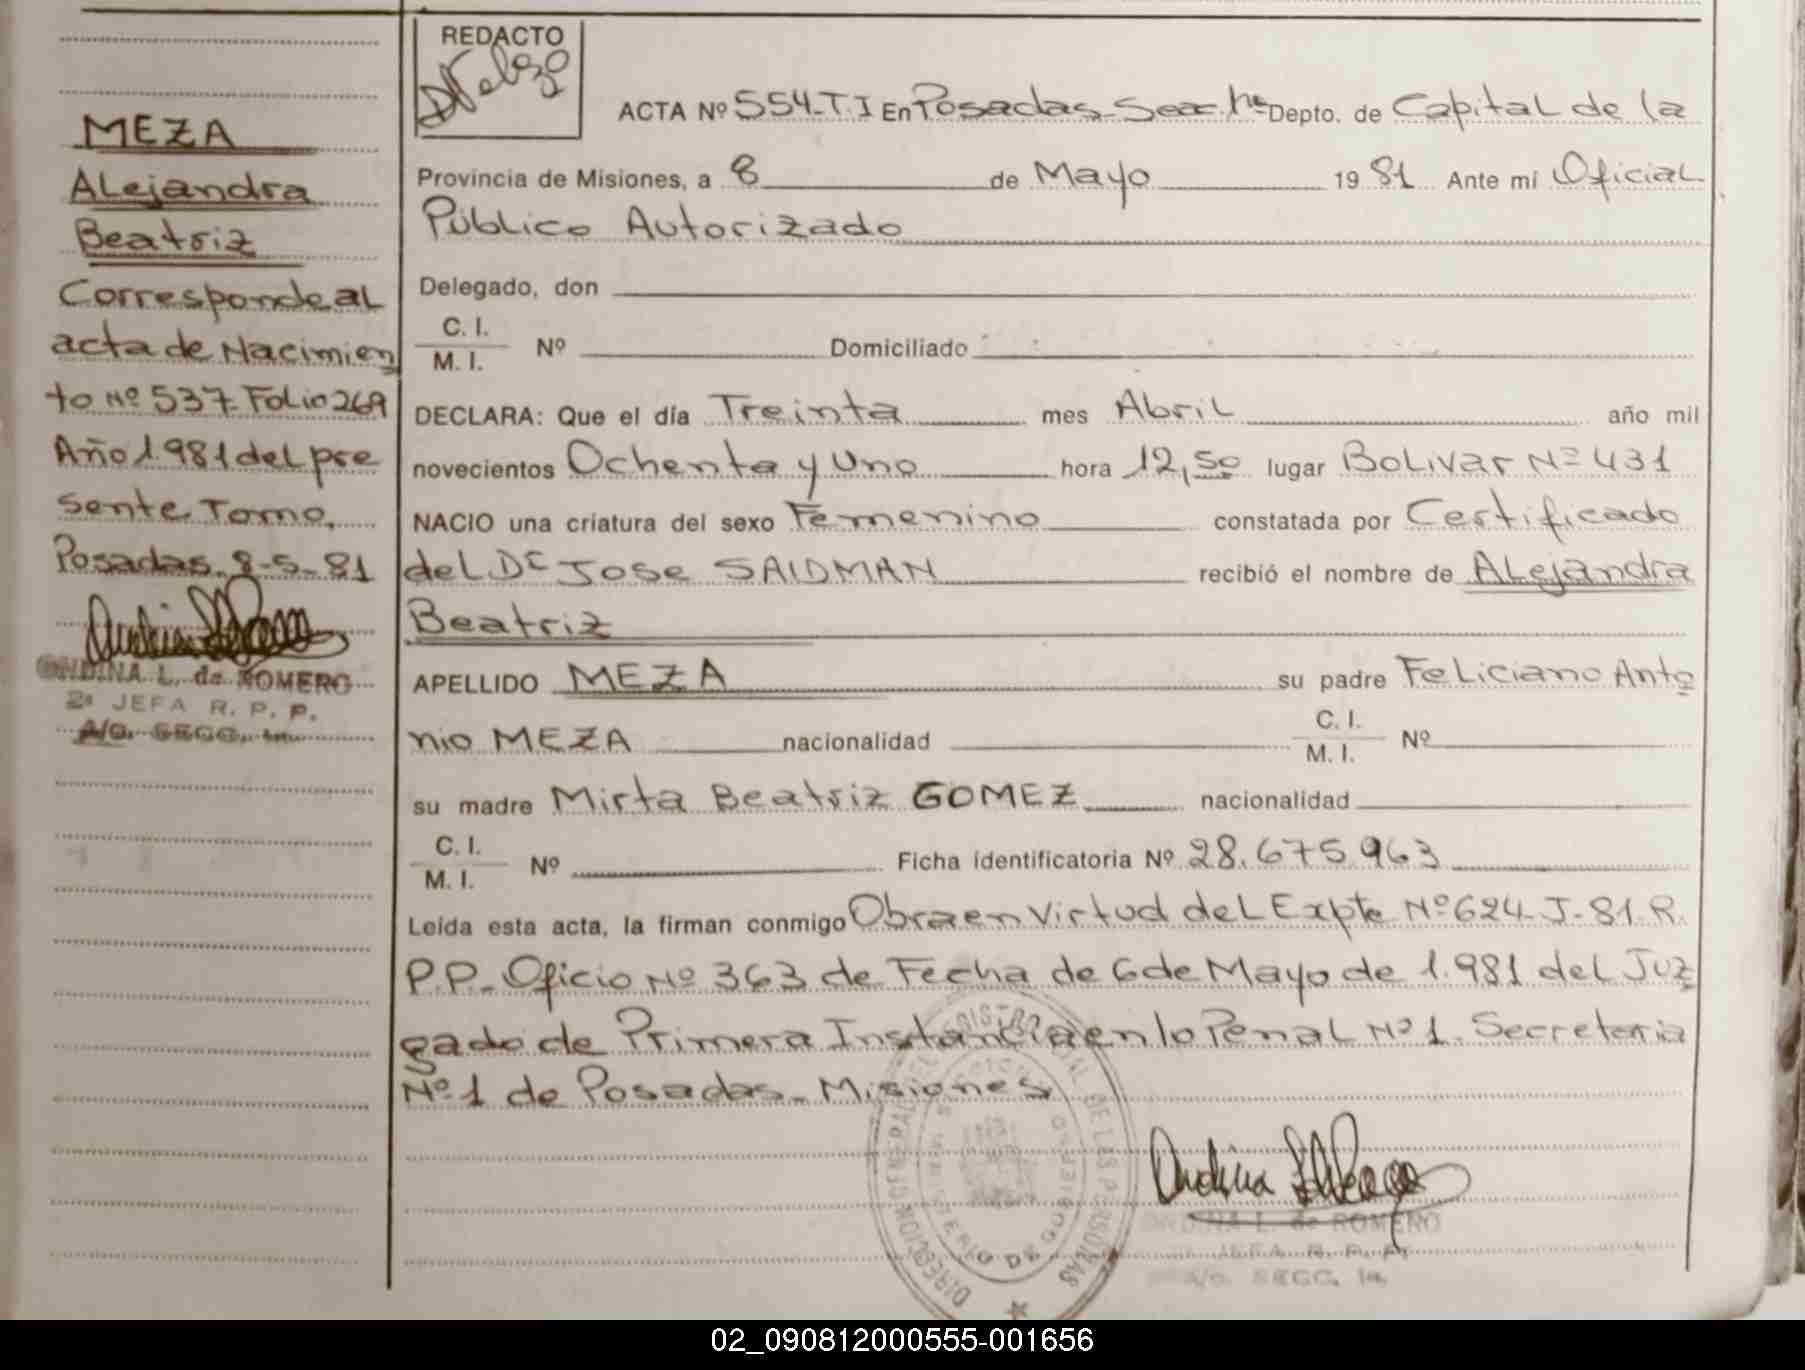 REDACTO
MEZA
Alejandra
Beatriz
Corresponde al
acta de Nacimien
to Nº 537 Folio 269
Año 1.981 del pre
sente Tomo.
Posadas 8-5-81
ONDINA L. de ROMERO
2ª JEFA R. P. P.
A/C. SECC. 1a.
ACTA Nº 554-T.I En Posadas-Secc. 1ª Depto. de Capital de la
Provincia de Misiones, a 8 de Mayo 1981 Ante mi Oficial
Público Autorizado
Delegado, don
C. I.
M. I. Nº Domiciliado
DECLARA: Que el día Treinta mes Abril año mil
novecientos Ochenta y Uno hora 12,50 lugar Bolivar Nº 431
NACIO una criatura del sexo Femenino constatada por Certificado
del Dr Jose SAIDMAN recibió el nombre de Alejandra
Beatriz
APELLIDO MEZA su padre Feliciano Anto
nio MEZA nacionalidad C. I. M. I. Nº
su madre Mirta Beatriz GOMEZ nacionalidad
C. I.
M. I. Nº Ficha identificatoria Nº 28.675.963
Leída esta acta, la firman conmigo Obra en Virtud del Expte Nº 624-J-81. R.
P.P. Oficio Nº 363 de Fecha de 6 de Mayo de 1.981 del Juz
gado de Primera Instancia en lo Penal Nº 1. Secretaria
Nº 1 de Posadas-Misiones
ONDINA L. de ROMERO
JEFA R. P. P.
A/c. SECC. 1a.
02_090812000555-001656